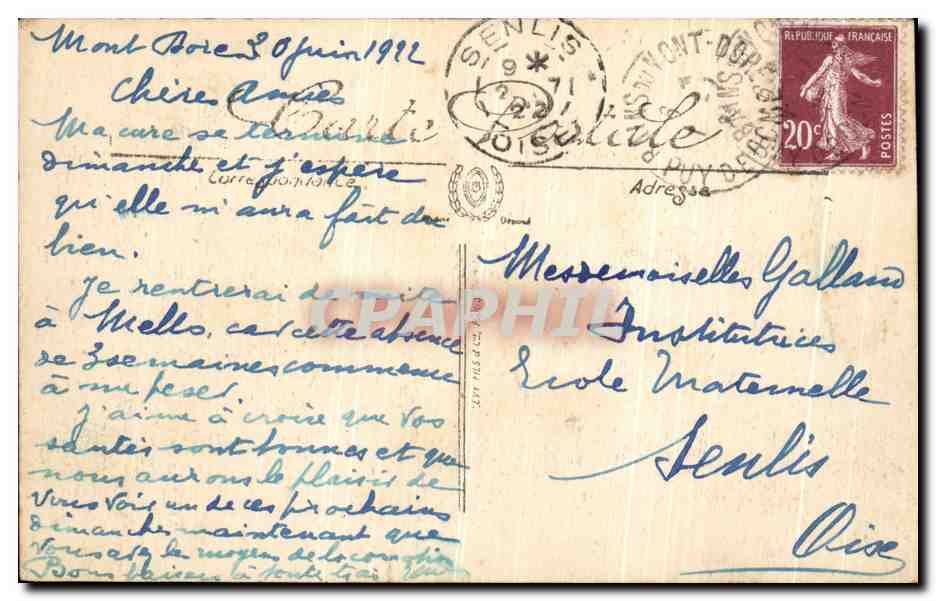 Mont Dore 30 juin 1922
Chères Amies
Ma cure se termine
dimanche et j'espère
qu'elle m'aura fait du
bien.
Je rentrerai de suite
à Mello, car cette absence
de 3 semaines commence
à me peser.
J'aime à croire que vos
santés sont bonnes et que
nous aurons le plaisir de
vous voir un de ces prochains
dimanches maintenant que
vous avez le moyens de locomotion
Bons baisers à toute trois
Carte Postale
Correspondance
Adresse
SENLIS
OISE
MONT-DORE
PUY DE DOME
REPUBLIQUE FRANÇAISE
20c
POSTES
CPAPHIL
Mesdemoiselles Galland
Institutrices
Ecole Maternelle
Senlis
Oise